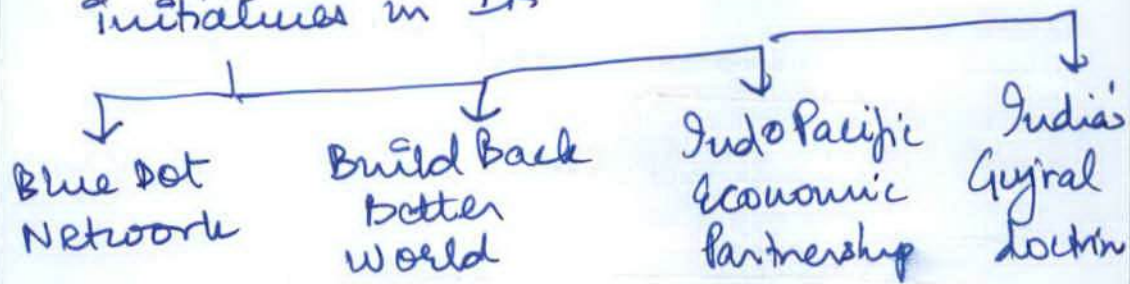 initiatives in
Blue Dot
Network
Build Back
Better
World
Indo Pacific
Economic
Partnership
India's
Gujral
Doctrin